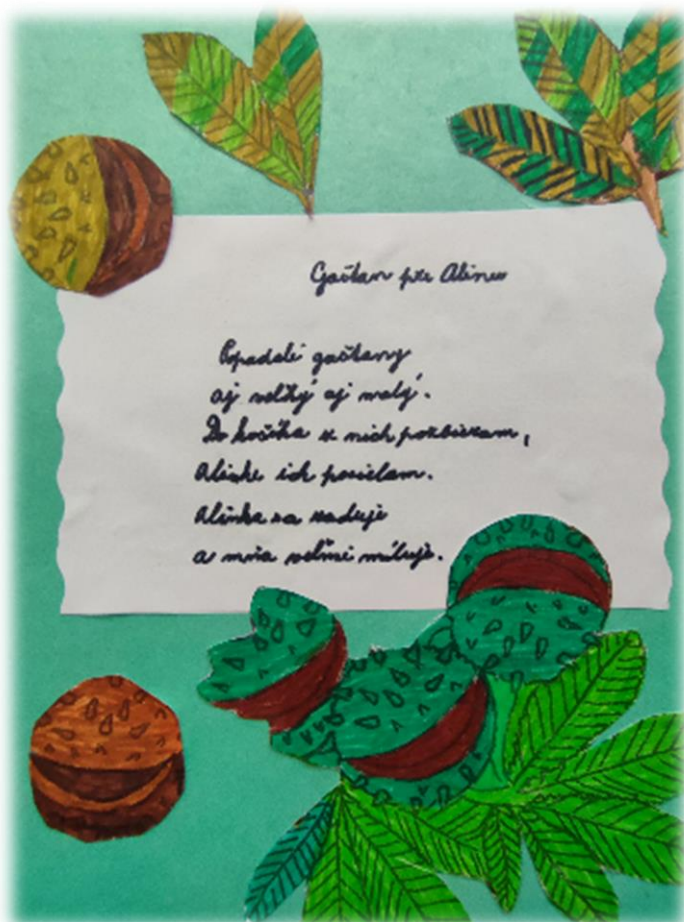 Gaštan pre Alinu
Popadali gaštany
aj veľký aj malý.
Do košíka z nich pozbieram,
Alinke ich posielam.
Alinka sa raduje
a mňa veľmi miluje.